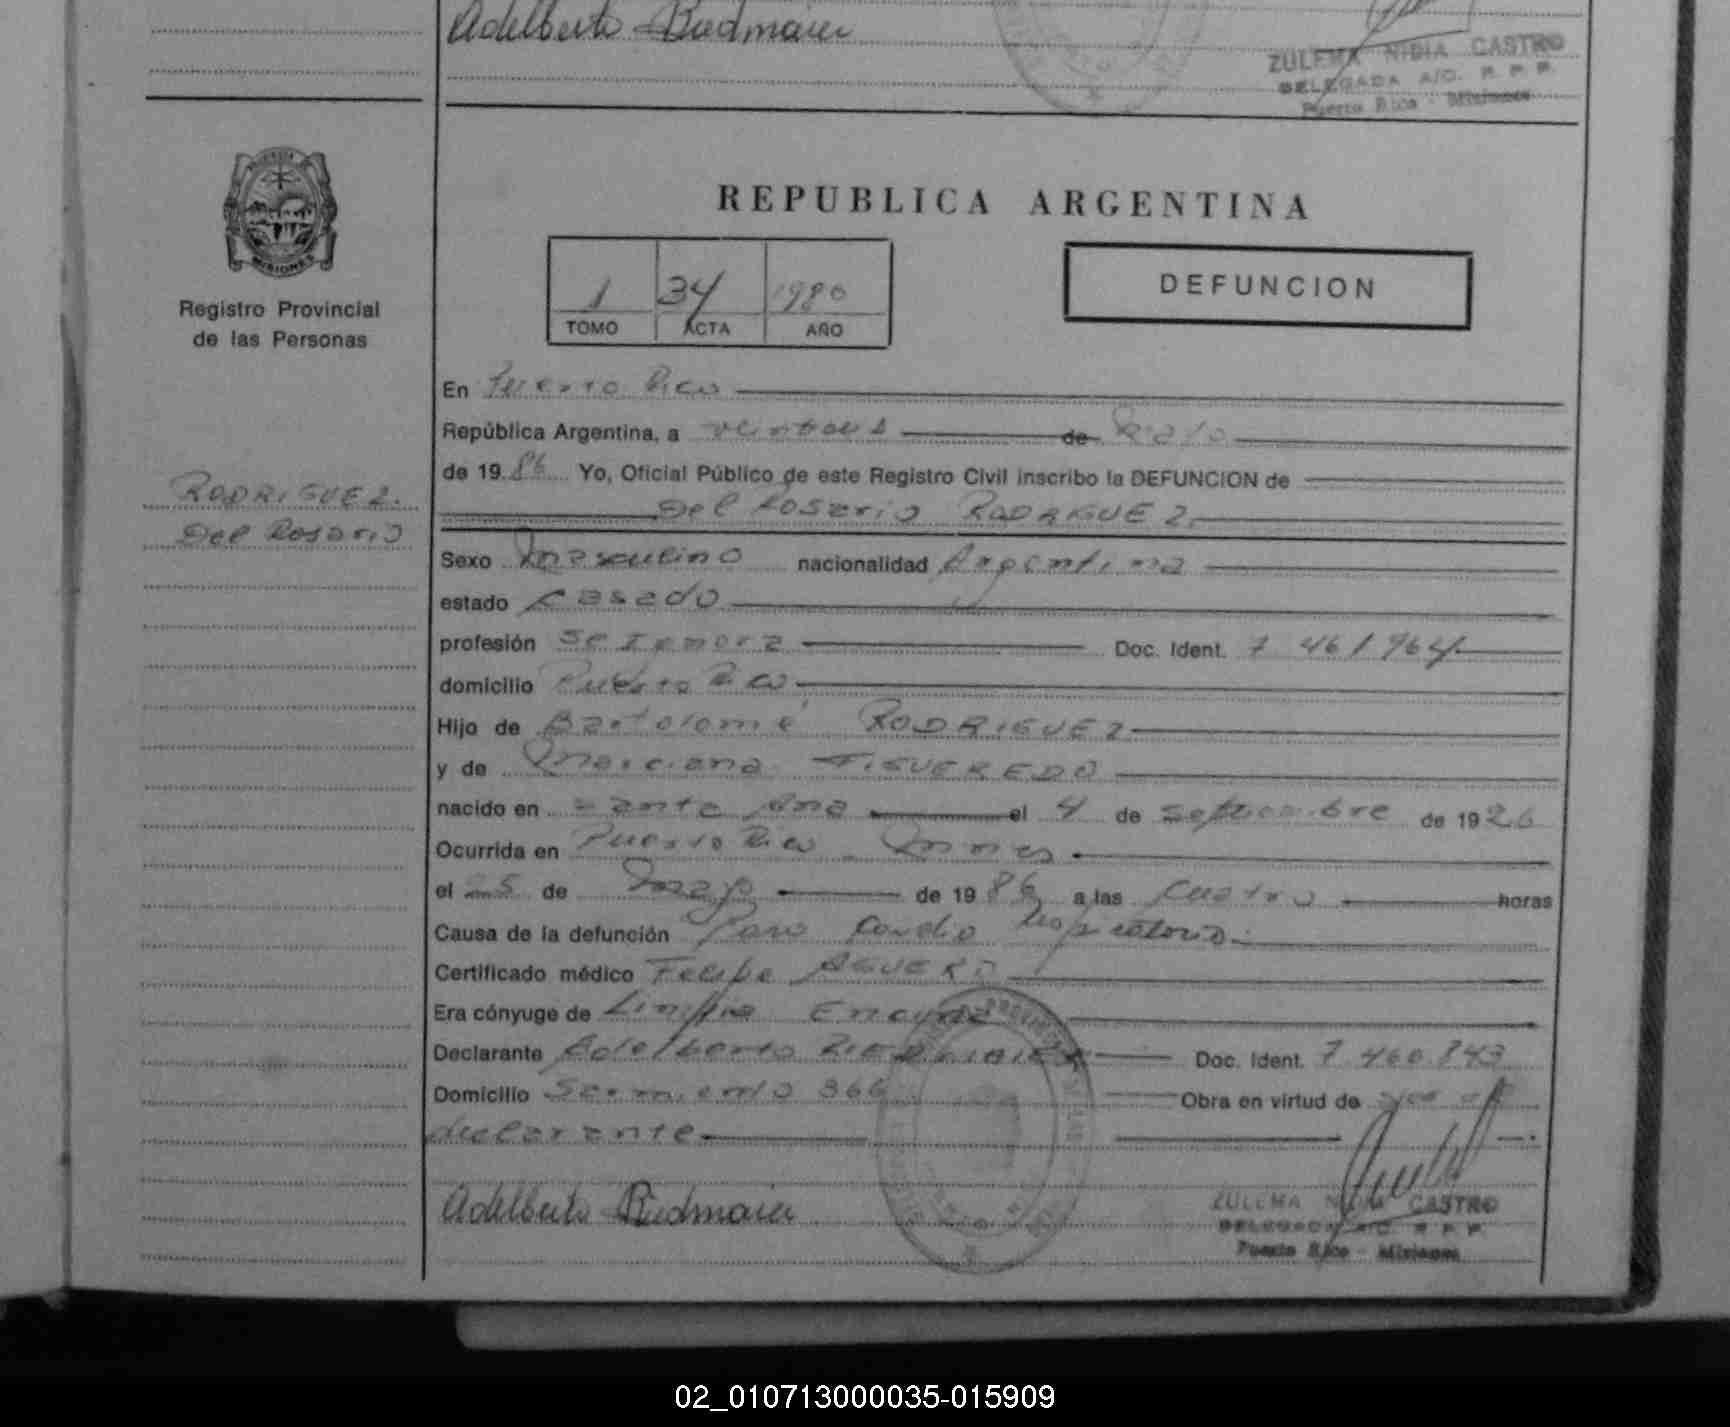 Adelberto Riedmaier
ZULEMA NIDIA CASTRO
DELEGADA A/C. R. P. P.
Puerto Rico - Misiones
MISIONES
Registro Provincial
de las Personas
REPUBLICA ARGENTINA
1 34 1986
TOMO ACTA AÑO
DEFUNCION
En Puerto Rico
República Argentina, a de Mayo
de 19 86 Yo, Oficial Público de este Registro Civil inscribo la DEFUNCION de
RODRIGUEZ.
Del Rosario
Del Rosario RODRIGUEZ.
Sexo Masculino nacionalidad Argentina
estado Casado
profesión Doc. Ident. 7 461964
domicilio Puerto Rico
Hijo de Bartolomé RODRIGUEZ
y de Marciana FIGUEREDO
nacido en Santa Ana el 4 de Septiembre de 1926
Ocurrida en Puerto Rico Mnes
el 25 de Mayo de 19 86 a las Cuatro horas
Causa de la defunción Paro Cardio respiratorio
Certificado médico Felipe AGUERO
Era cónyuge de
Declarante Adelberto RIEDMAIER Doc. Ident. 7.460.843
Domicilio Sarmiento 366 Obra en virtud de
declarante
Adelberto Riedmaier
ZULEMA NIDIA CASTRO
DELEGADA A/C R. P. P.
Puerto Rico - Misiones
02_010713000035-015909